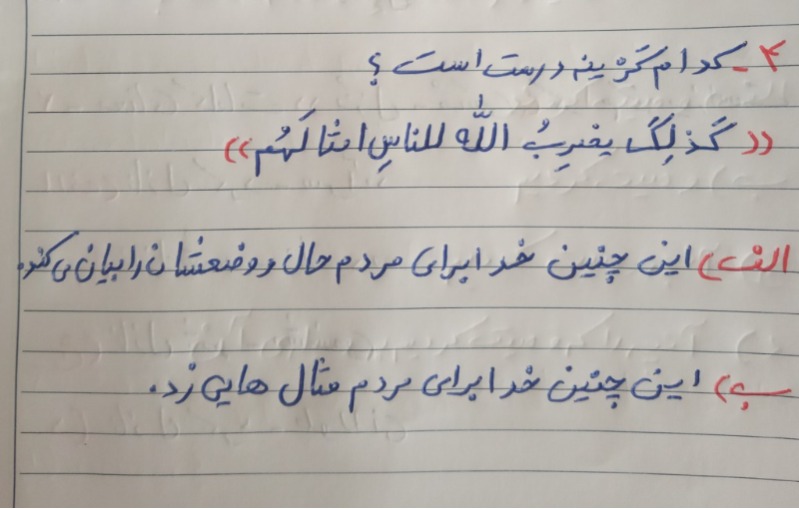 ۴- کدام گزینه درست است؟
«کَذلِکَ یضرِبُ اللّٰه للناسِ امثالَهُم»
الف) این چنین خدا برای مردم حال و وضعشان را بیان می کند.
ب) این چنین خدا برای مردم مثال هایی زد.